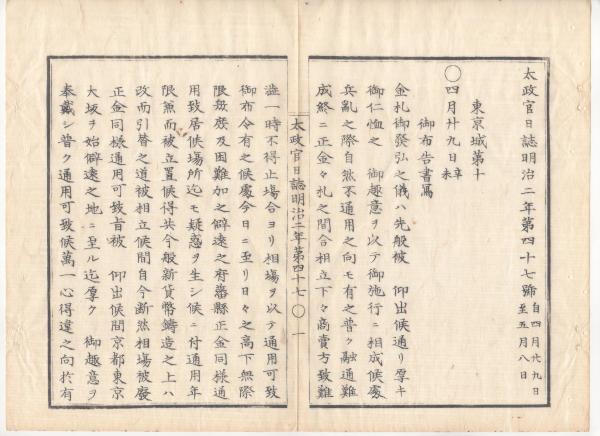 太政官日誌明治二年第四十七號 自四月廿九日 至五月八日
東京城第十
〇四月廿九日 辛未
御布告書寫
金札御發弘之儀ハ先般被 仰出候通リ厚キ
御仁恤之 御趣意ヲ以テ御施行ニ相成候處
兵亂之際自然不通用之向モ有之普ク融通難
成終ニ正金ト札之間合相立下々商賣方致難
澁一時不得止場合ヨリ相場ヲ以テ通用可致
御布令有之候處今日ニ至リ日々之高下無際
限毎度及困難加之僻遠之府藩縣正金同樣通
用致居候場所迄モ疑惑ヲ生シ候ニ付通用年
限無而被立置候得共今般新貨幣鑄造之上ハ
改而引替之道被相立候間自今斷然相場被廢
正金同樣通用可致旨被 仰出候間京都東京
大坂ヲ始僻遠之地ニ至ル迄厚ク 御趣意ヲ
奉戴シ普ク通用可致候萬一心得違之向於有
太政官日誌明治二年第四十七 〇 一